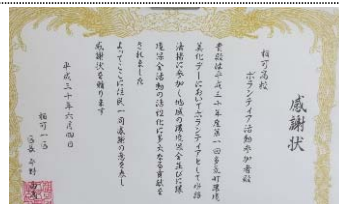 感謝状
相可高校
ボランティア活動参加者殿
貴殿は平成三十年度第一回多気町環境
美化デーにおいてボランティアとして清掃
活動に参加し地域の環境保全並びに環
境保全活動の活性化に多大な貢献を
されました
よってここに住民一同感謝の意を表し
感謝状を贈ります
平成三十年六月四日
相可一区
区長